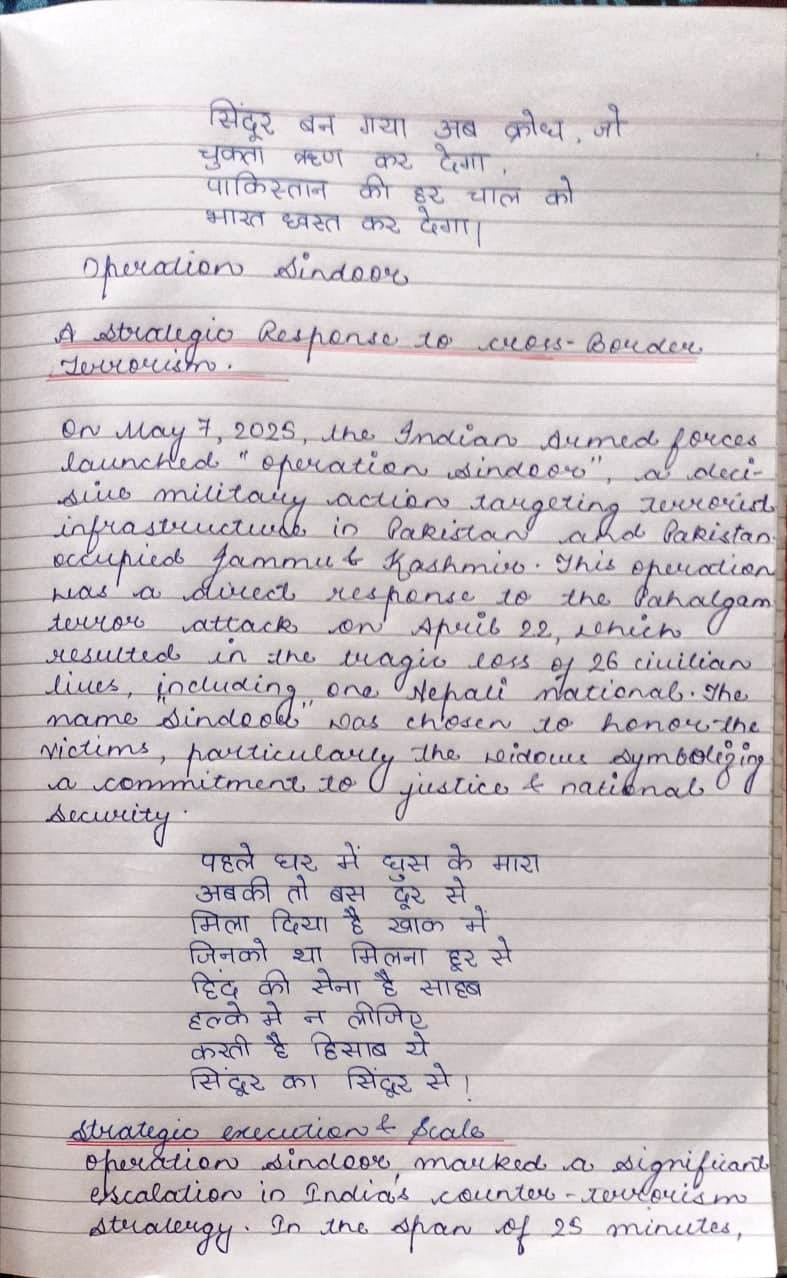 सिंदूर बन गया अब क्रोध, जो
चुकता ऋण कर देगा,
पाकिस्तान की हर चाल को
भारत ध्वस्त कर देगा।
Operation Sindoor
A Strategic Response to cross-Border
Terrorism.
On May 7, 2025, the Indian Armed forces
launched "operation sindoor", a deci-
sive military action targeting terrorist
infrastructure in Pakistan and Pakistan-
occupied Jammu & Kashmir. This operation
was a direct response to the Pahalgam
terror attack on April 22, which
resulted in the tragic loss of 26 civilian
lives, including one Nepali national. The
name "Sindoor" was chosen to honor the
victims, particularly the widows symbolizing
a commitment to justice & national
security.
पहले घर में घुस के मारा
अबकी तो बस दूर से
मिला दिया है खाक में
जिनको था मिलना हूर से
हिंद की सेना है साहब
हल्के मे न लीजिए
करती है हिसाब ये
सिंदूर का सिंदूर से!
Strategic execution & Scale
Operation sindoor, marked a significant
escalation in India's counter-terrorism
stratergy. In the span of 25 minutes,